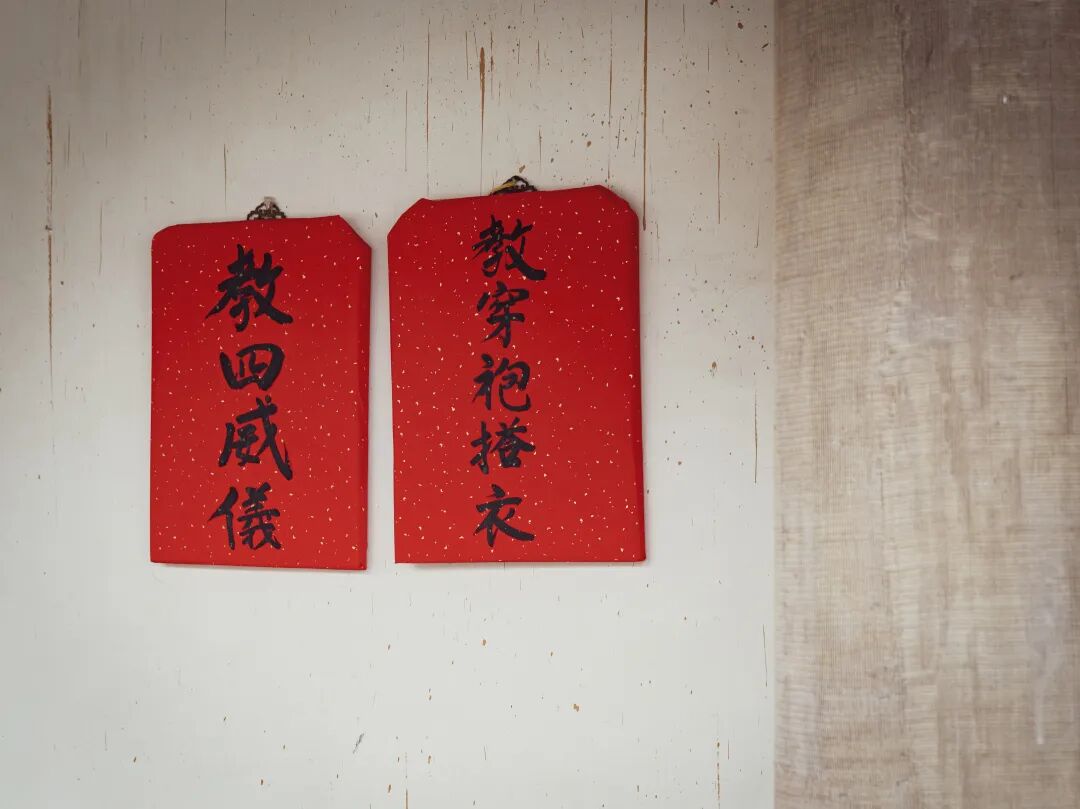 教穿袍搭衣
教四威儀